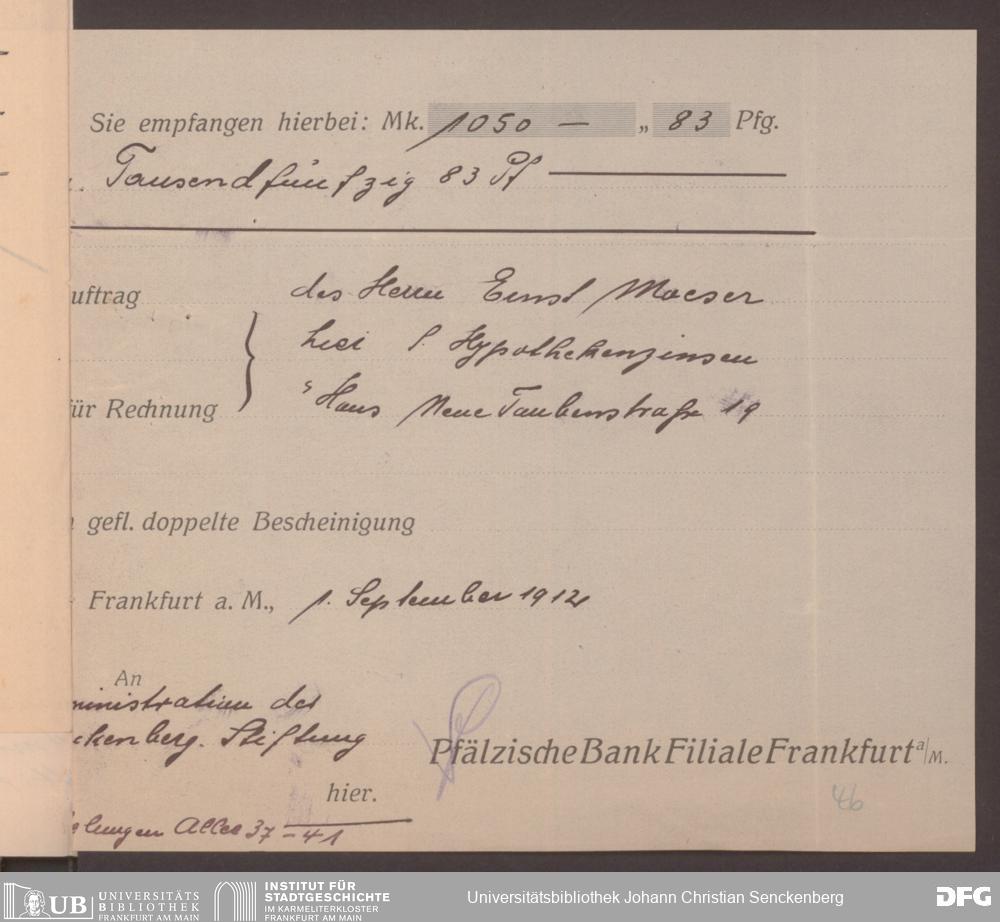 Sie empfangen hierbei: Mk. 1050 — „ 83 Pfg.
Tausendfünfzig 83 Pf
uftrag des Herrn Ernst Moeser
hier f. Hypothekenzinsen
ür Rechnung "Haus Neue Taubenstraße 19
gefl. doppelte Bescheinigung
Frankfurt a. M., 1. September 1912
An
ministration der
ckenberg. Stiftung
Pfälzische Bank Filiale Frankfurt a/M.
hier.
Allee 37-41
46
UB UNIVERSITÄTS BIBLIOTHEK FRANKFURT AM MAIN
INSTITUT FÜR STADTGESCHICHTE IM KARMELITERKLOSTER FRANKFURT AM MAIN
Universitätsbibliothek Johann Christian Senckenberg
DFG